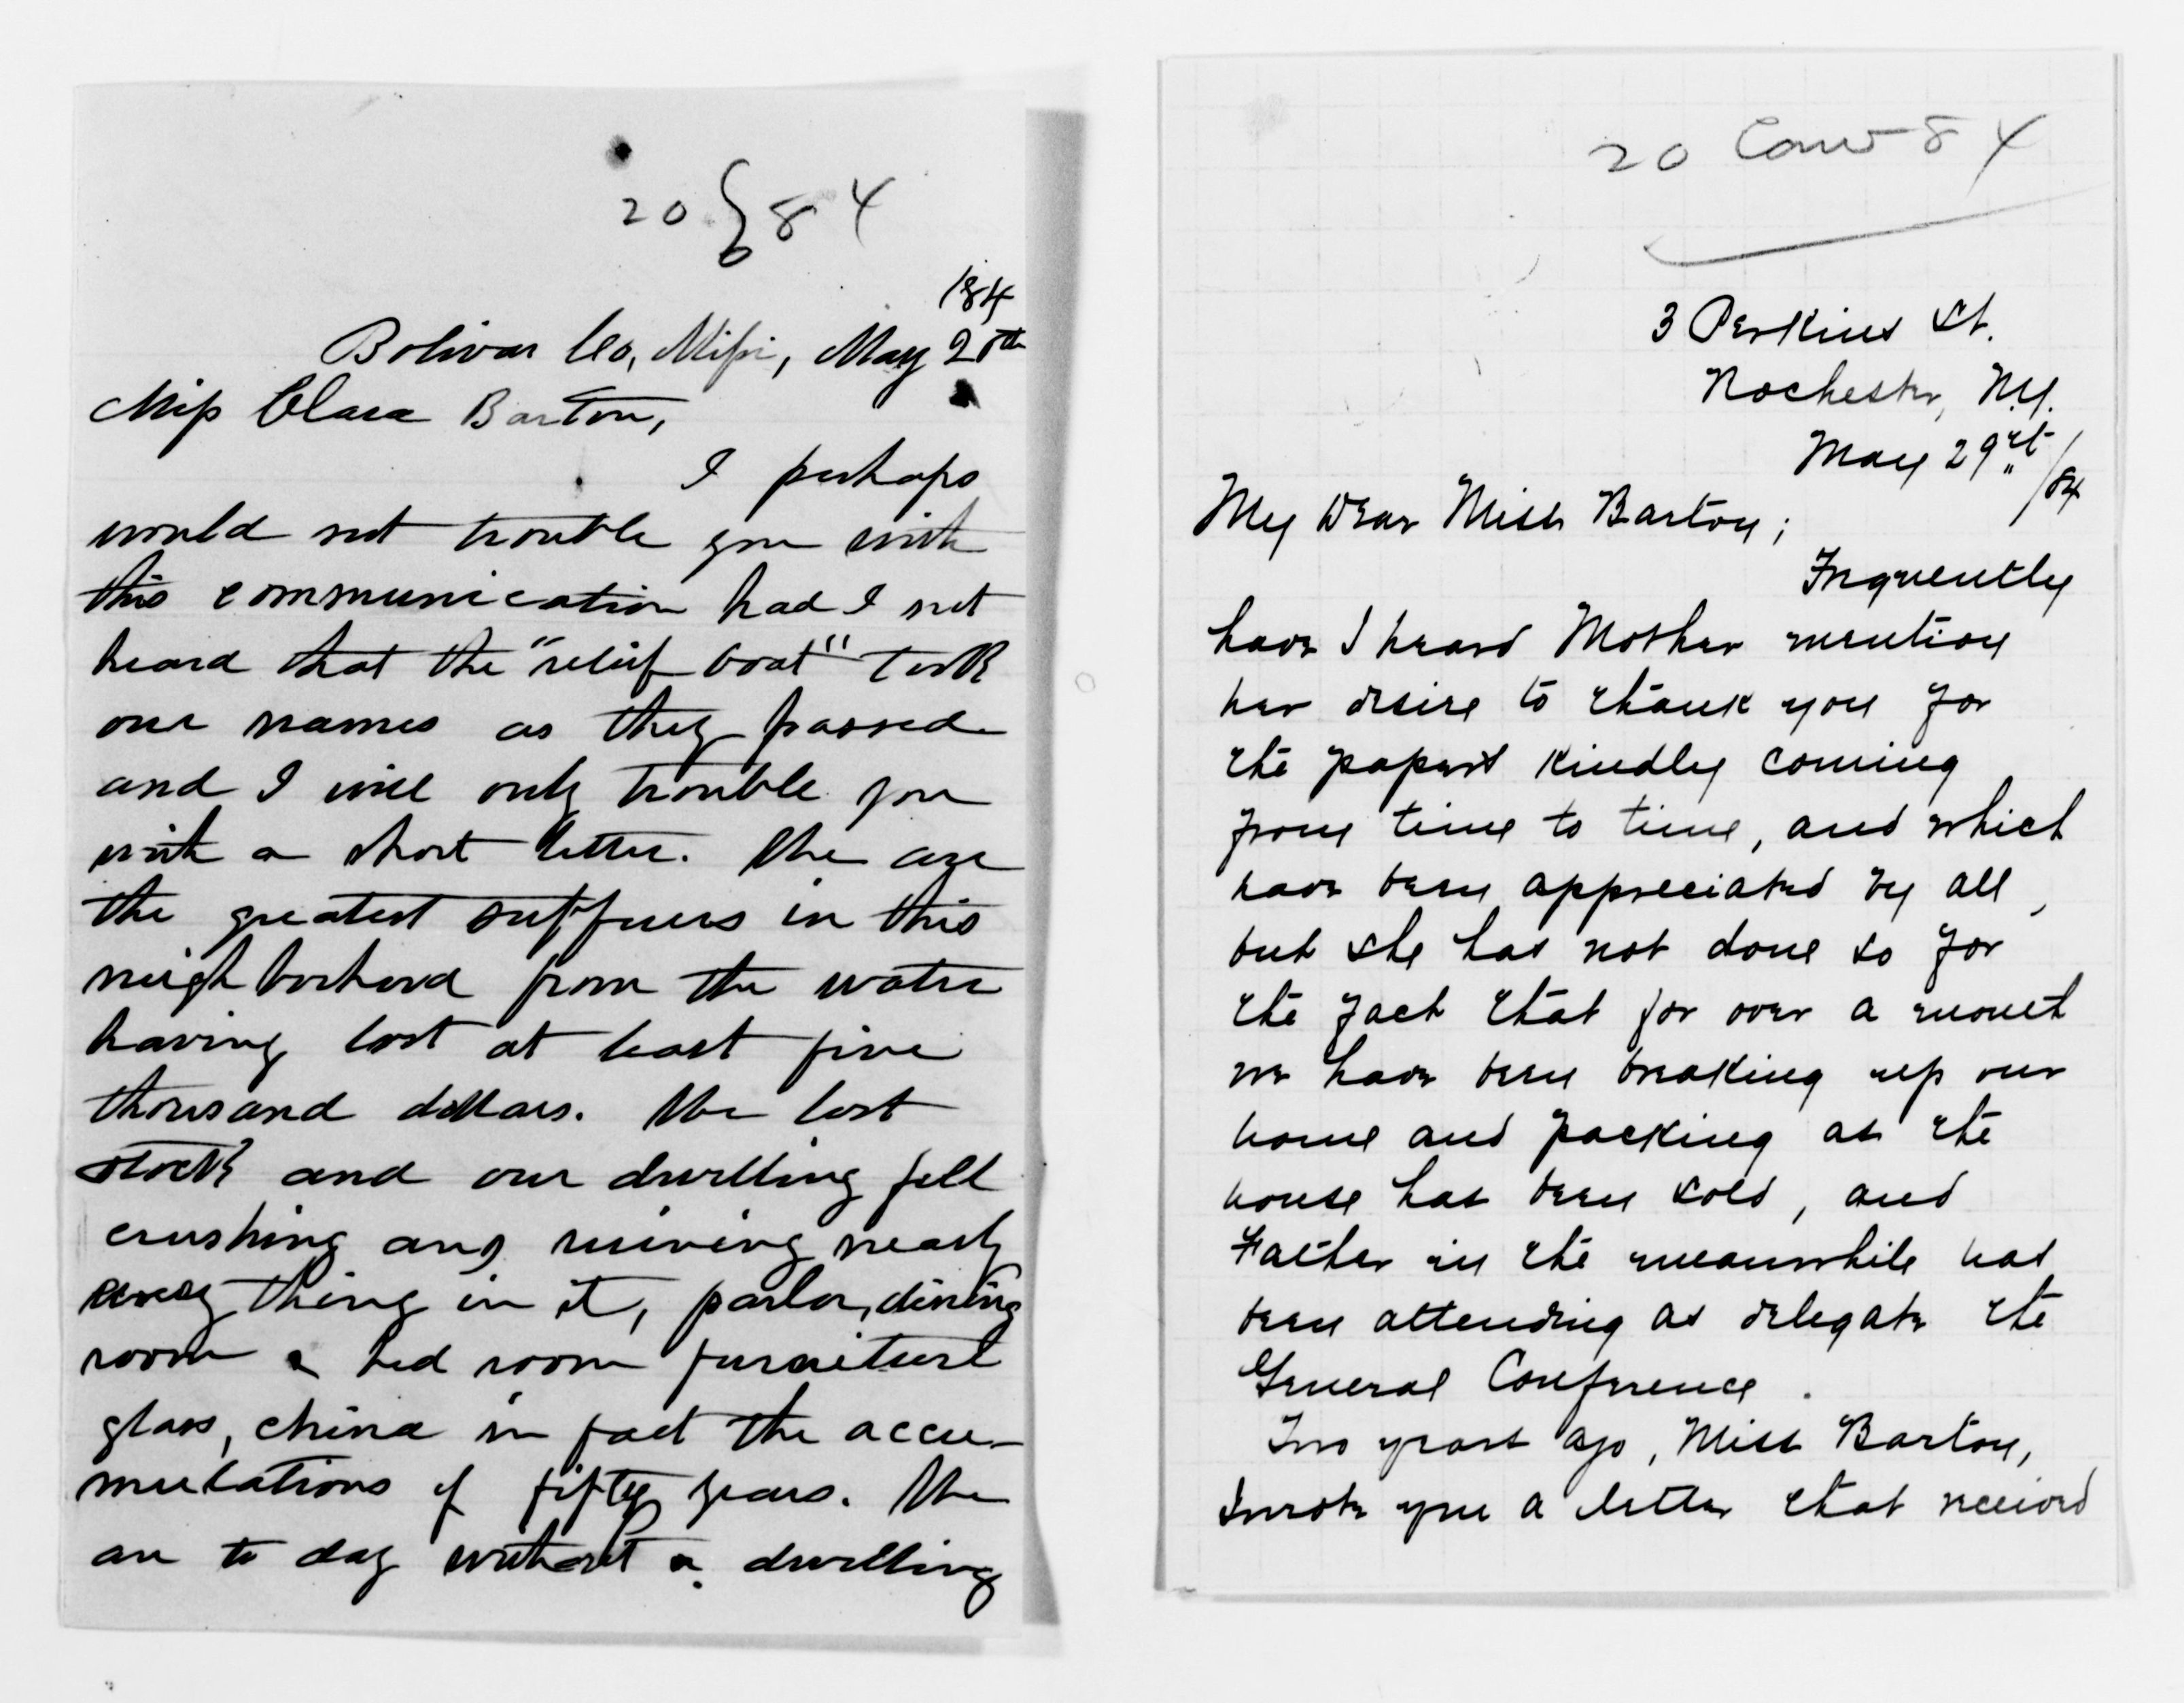 20 } 84
184
Bolivar Co, Missi, May 20th
Miss Clara Barton,
I perhaps
would not trouble you with
this communication had I not
heard that the "relief boat" took
our names as they passed
and I will only trouble you
with a short letter. We are
the greatest sufferers in this
neighborhood from the water
having lost at least five
thousand dollars. We lost
stock and our dwelling fell
crushing and ruining nearly
every thing in it, parlor, dining
room & bed room furniture
glass, china in fact the accu-
mulations of fifty years. We
are to day without a dwelling
20 84
3 Perkins St.
Rochester, N.Y.
May 29th /84
My Dear Miss Barton;
Frequently
have I heard Mother mention
her desire to thank you for
the papers kindly coming
from time to time, and which
have been appreciated by all,
but she has not done so for
the fact that for over a month
we have been breaking up our
home and packing as the
house has been sold, and
Father in the meanwhile has
been attending as delegate the
General Conference.
Two years ago, Miss Barton,
I wrote you a letter that received